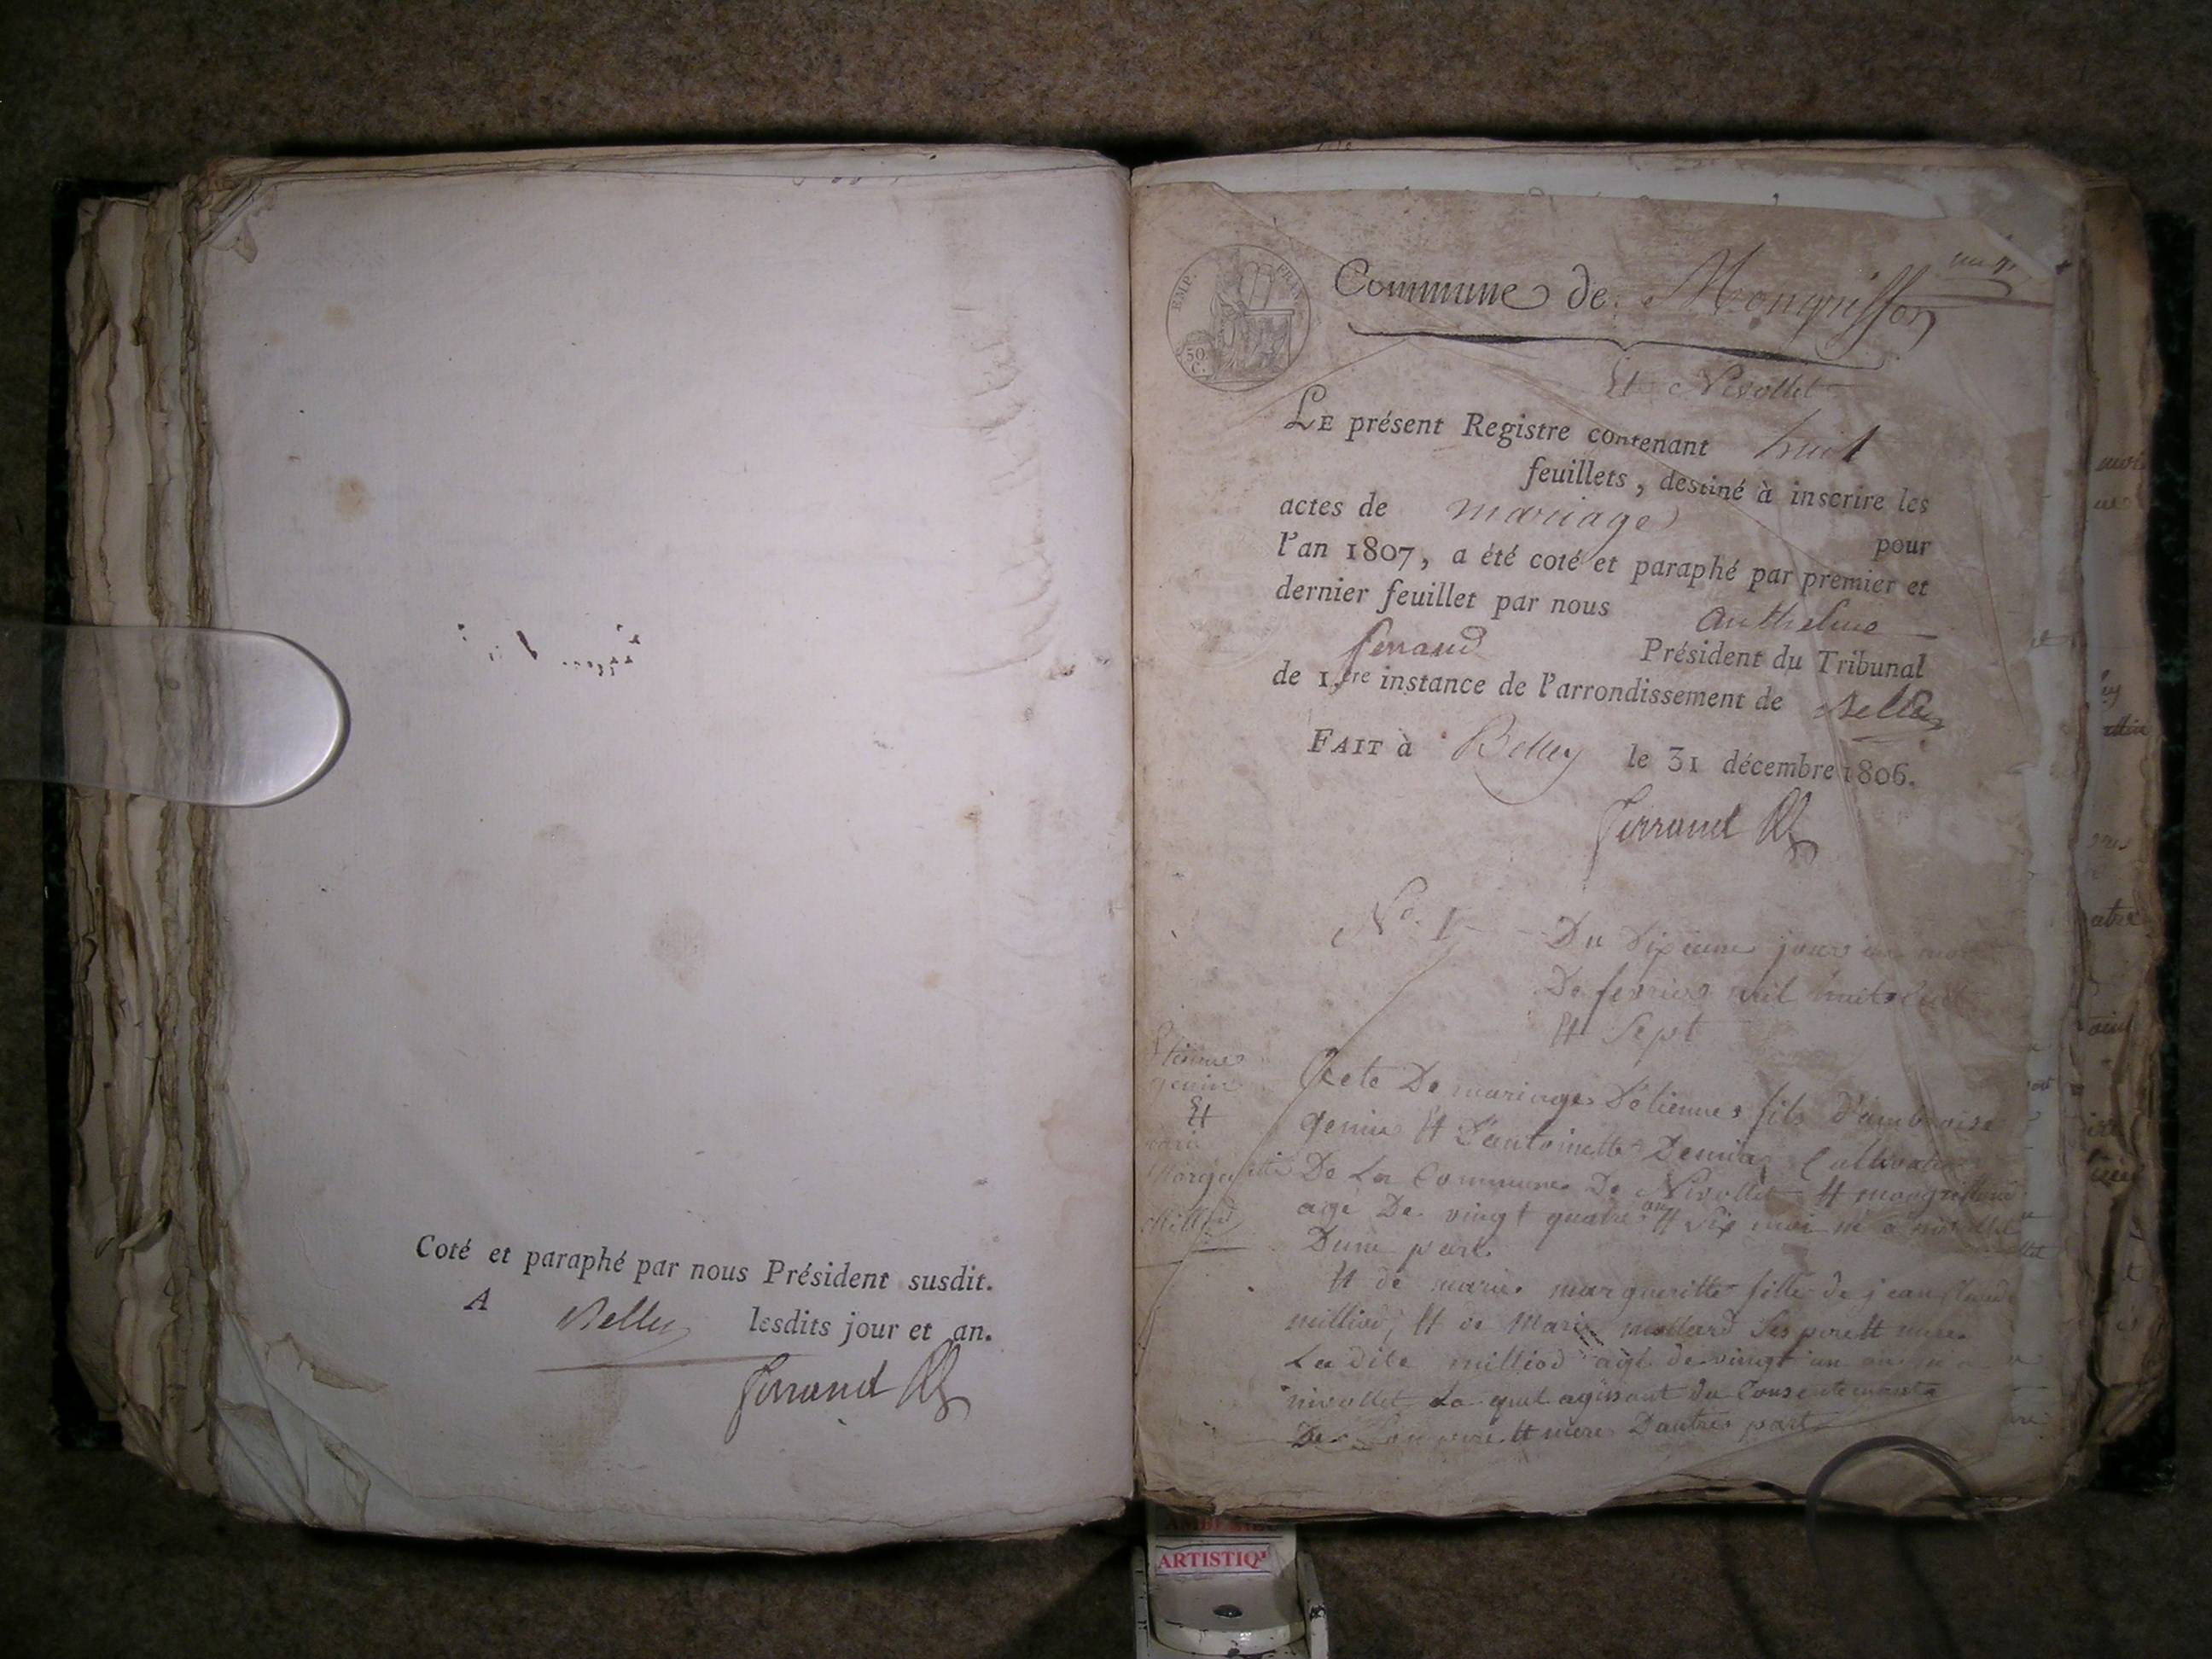 Coté et paraphé par nous Président susdit.
A Belley lesdits jour et an.
Ferrand
EMP. FRAN
50
C.
Commune de Mongriffon
Et Nivollet
LE présent Registre contenant huit
feuillets, destiné à inscrire les
actes de mariage pour
l'an 1807, a été coté et paraphé par premier et
dernier feuillet par nous Anthelme
ferrand Président du Tribunal
de 1.ere instance de l'arrondissement de Belley
FAIT à Belley le 31 décembre 1806.
Ferrand
No. 1 Du Dixieme jour
De fevrier mil huit
Et Sept
Etienne
genin
Et
marie
Margueritte
Milliod
Acte De mariage D'etienne fils d'ambroise
genin Et D'antoinette Cultivateur
De La Commune De Nivollet Et mongriffon
agé De vingt quatre an Et Six moi né a nivollet
Dune part
Et de marie margueritte fille de jean Claude
milliod, Et de Marie mollard Ses pere Et mere
La dite milliod agé de vingt un an
nivollet La quel agissant du Consentement
De Son pere Et mere D'autre part
ARTISTIQ